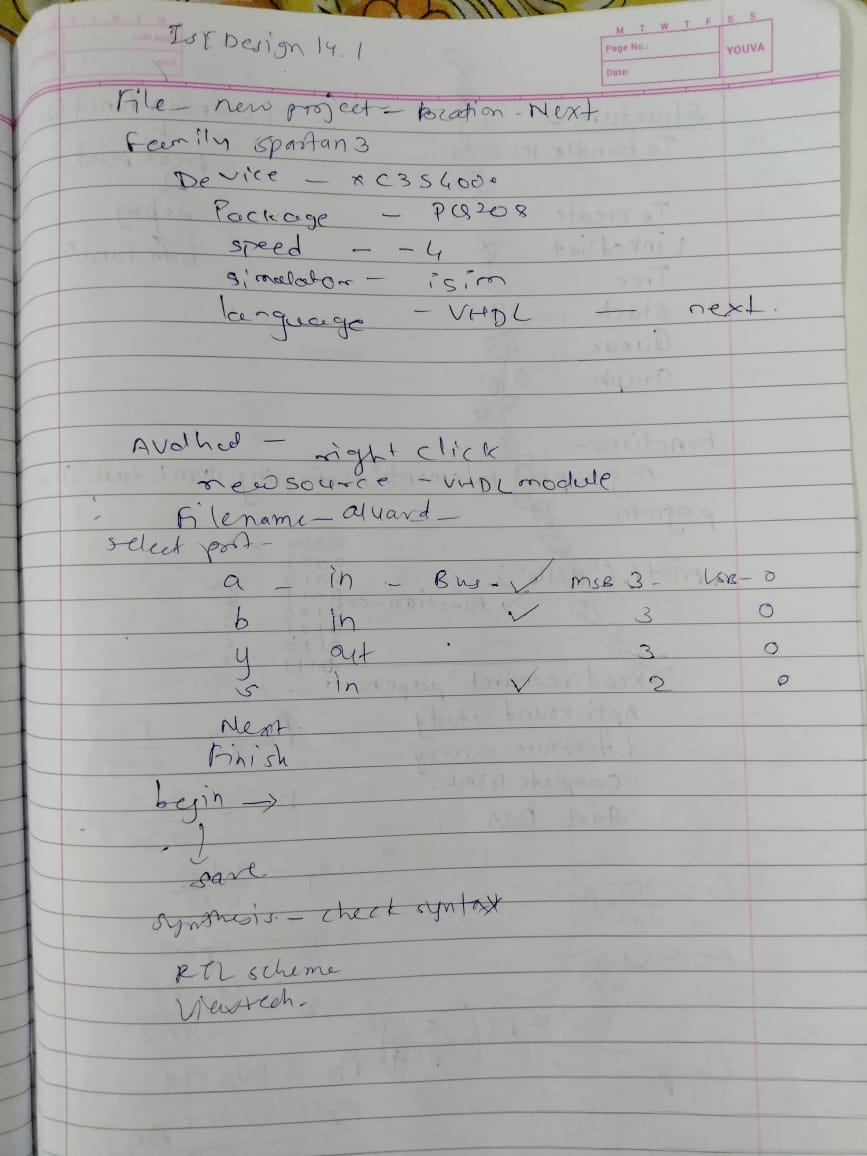 M T W T F S S
Page No.:
YOUVA
Date:
ISE Design 14.1
File - new project - location - Next
Family spartan 3
Device - xC3S400
Package - PQ208
speed - -4
simulator - isim
language - VHDL - next.
right click
new source - VHDL module
Filename - aluard -
select port -
a - in - Bus - ✓ MSB 3 - LSB - 0
b in ✓ 3 0
y out 3 0
s in ✓ 2 0
Next.
Finish
begin →
↓
save
Synthesis - check syntax
RTL scheme
Viewtech.